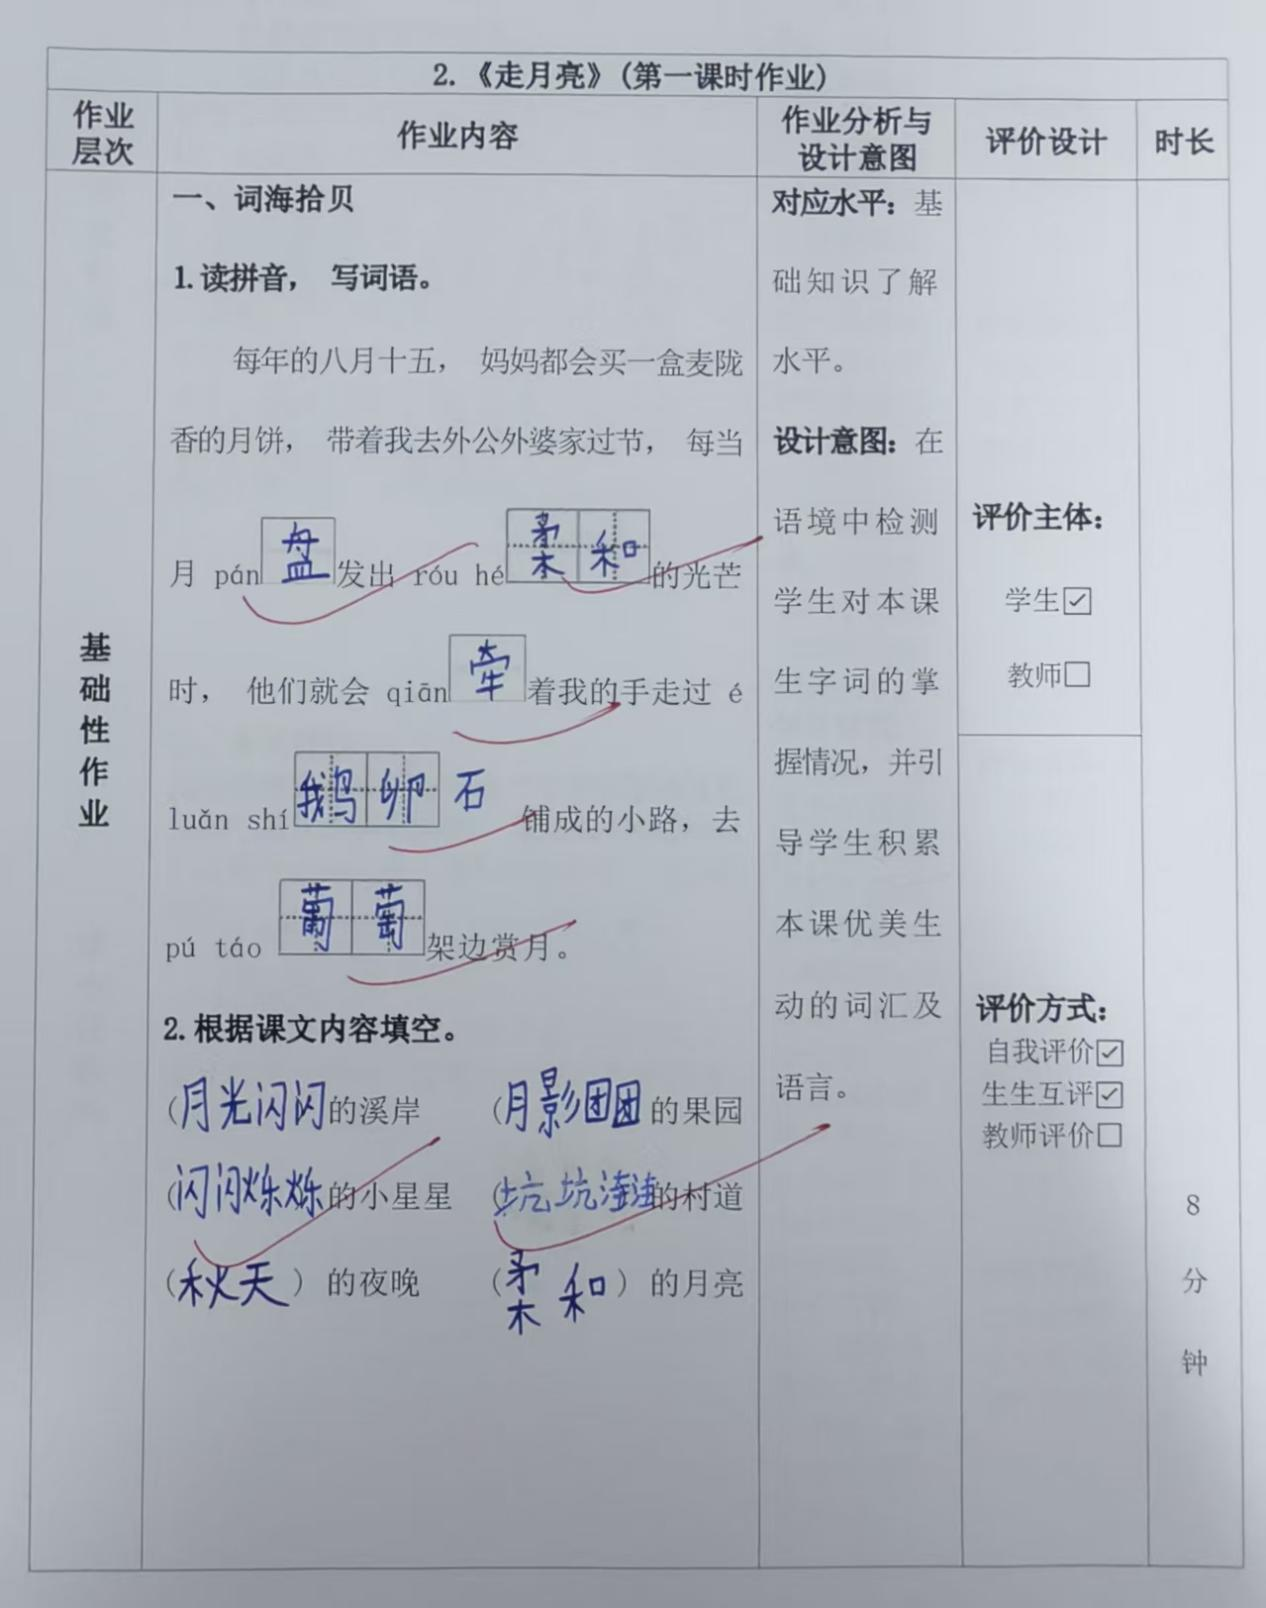 2.《走月亮》(第一课时作业)
作业层次
作业内容
作业分析与设计意图
评价设计
时长
基础性作业
一、词海拾贝
1.读拼音， 写词语。
每年的八月十五， 妈妈都会买一盒麦陇
香的月饼， 带着我去外公外婆家过节， 每当
月 pán 盘 发出 róu hé 柔和 的光芒
时， 他们就会 qiān 牵 着我的手走过 é
luǎn shí 鹅卵 石 铺成的小路，去
pú táo 葡萄 架边赏月。
2.根据课文内容填空。
(月光闪闪的溪岸 (月影团团的果园
(闪闪烁烁的小星星 (坑坑洼洼的村道
(秋天）的夜晚 (柔和）的月亮
对应水平：基
础知识了解
水平。
设计意图：在
语境中检测
学生对本课
生字词的掌
握情况，并引
导学生积累
本课优美生
动的词汇及
语言。
评价主体：
学生☑
教师☐
评价方式：
自我评价☑
生生互评☑
教师评价☐
8
分
钟